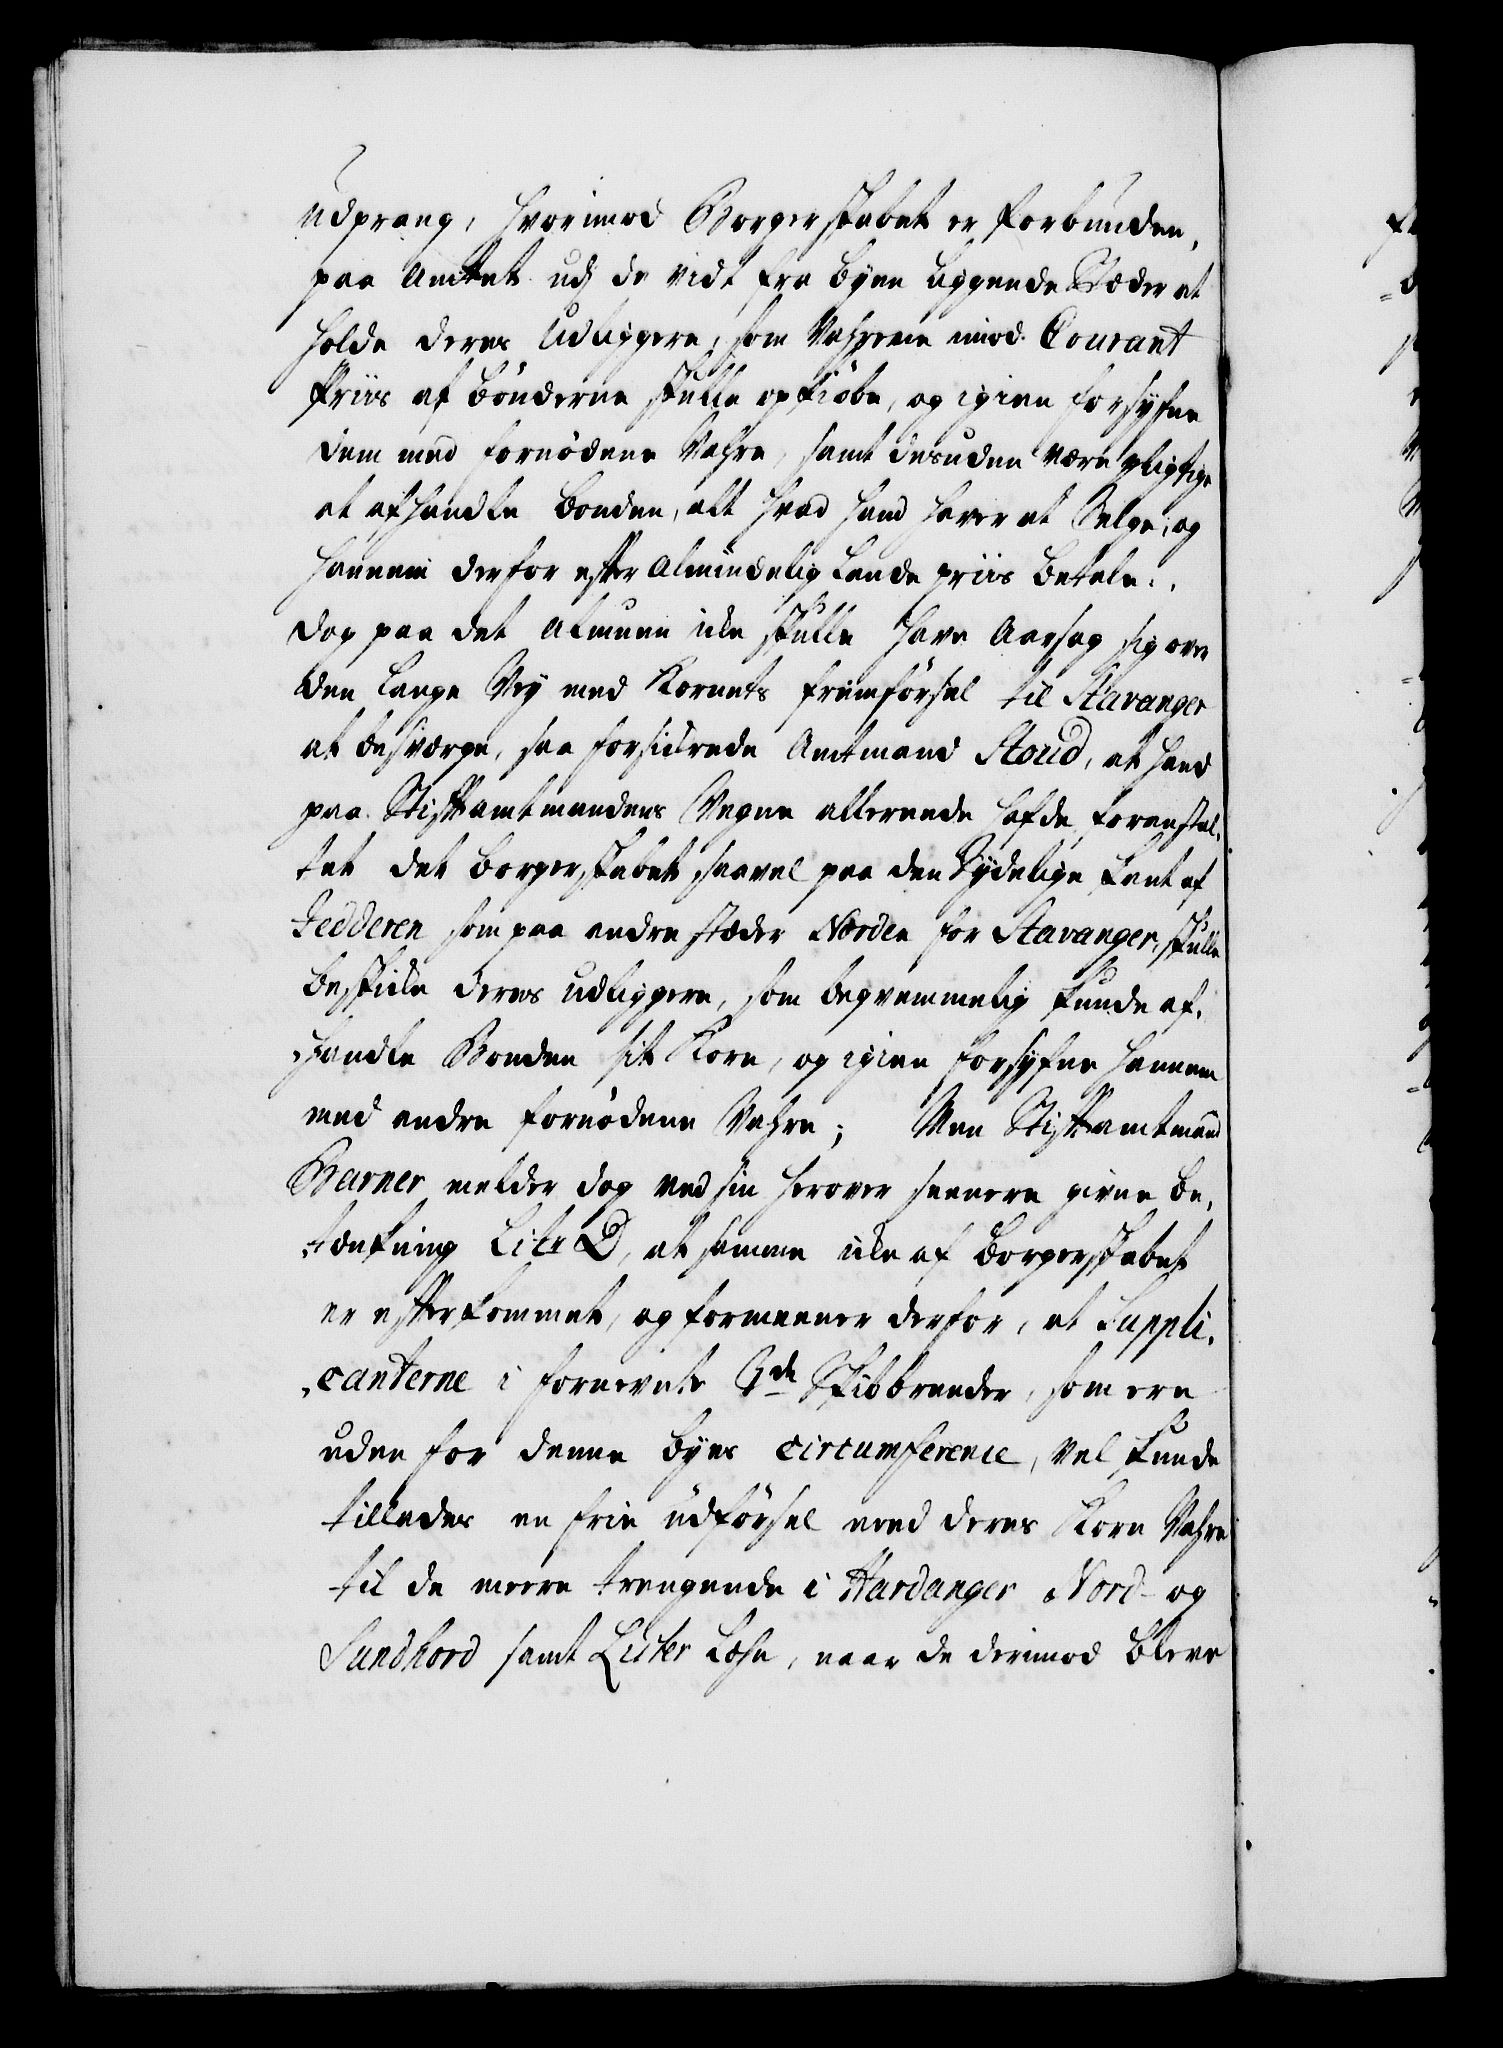 udprang, hvorimod Borgerskabet er forbunden,
paa Amtet udj de vidt fra Byen liggende Stæder at
holde deres Udliggere, som Vahrene imod Courant
Priis af Bønderne skulle opkiøbe, og igien forsyfne
dem med fornødene Vahre, samt desuden være pligtige
at afhandle Bonden, alt hvad hand haver at Selge, og
hannem derfor efter Almindelig Lands priis betale.
dog paa det Almuen icke skulle have Aarsag sig over
den lange Vey med Kornets fremførsel til Stavanger
at besværge, saa forsickrede Amtmand Stoud, at hand
paa Stiftamtmandens Vegne allereede hafde foranstal-
tet det Borgerskabet saavel paa den Sydelige kant af
Jedderen som paa andre stæder Norden for Stavanger, skulle
beskicke deres udliggere, som beqvemmelig kunde af-
handle Bonden sit Korn, og igien forsyfne hannem
med andre fornødene Vahre; Men Stiftamtmand
Barner melder dog ved sin herover seenere givne be-
tænkning Litr D, at samme icke af Borgerskabet
er efterkommet, og formeener derfor, at Suppli-
canterne i fornevnte 3de Skibbreeder, som ere
uden for denne Byes circumference, vel kunde
tillades en frie udførsel med deres Korn Vahre
til de meere trengende i Hardanger Nord- og
Sundhord samt Lister Lehn, naar de derimod bleve